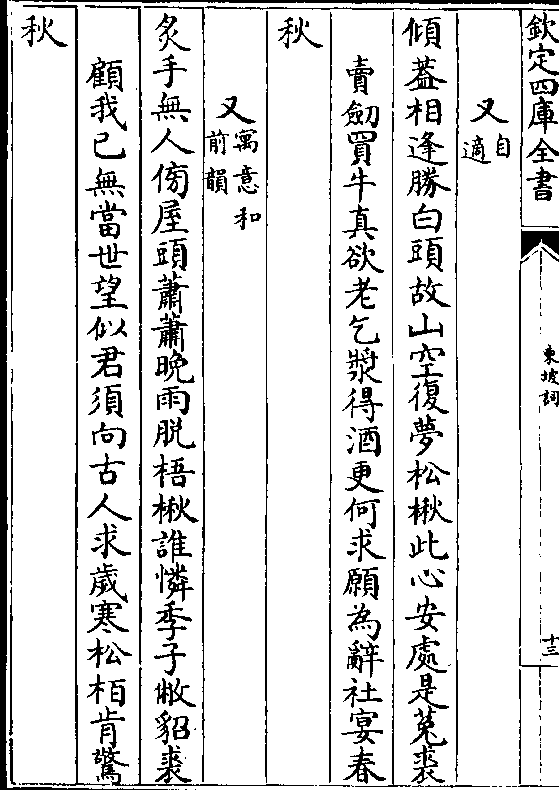 欽定四庫全書
東坡詞
十三
又自適
傾蓋相逢勝白頭故山空復夢松楸此心安處是菟裘
賣劒買牛真欲老乞漿得酒更何求願為辭社宴春
秋
又寓意和前韻
炙手無人傍屋頭蕭蕭晚雨脱梧楸誰憐季子敝貂裘
顧我已無當世望似君須向古人求歲寒松栢肯驚
秋